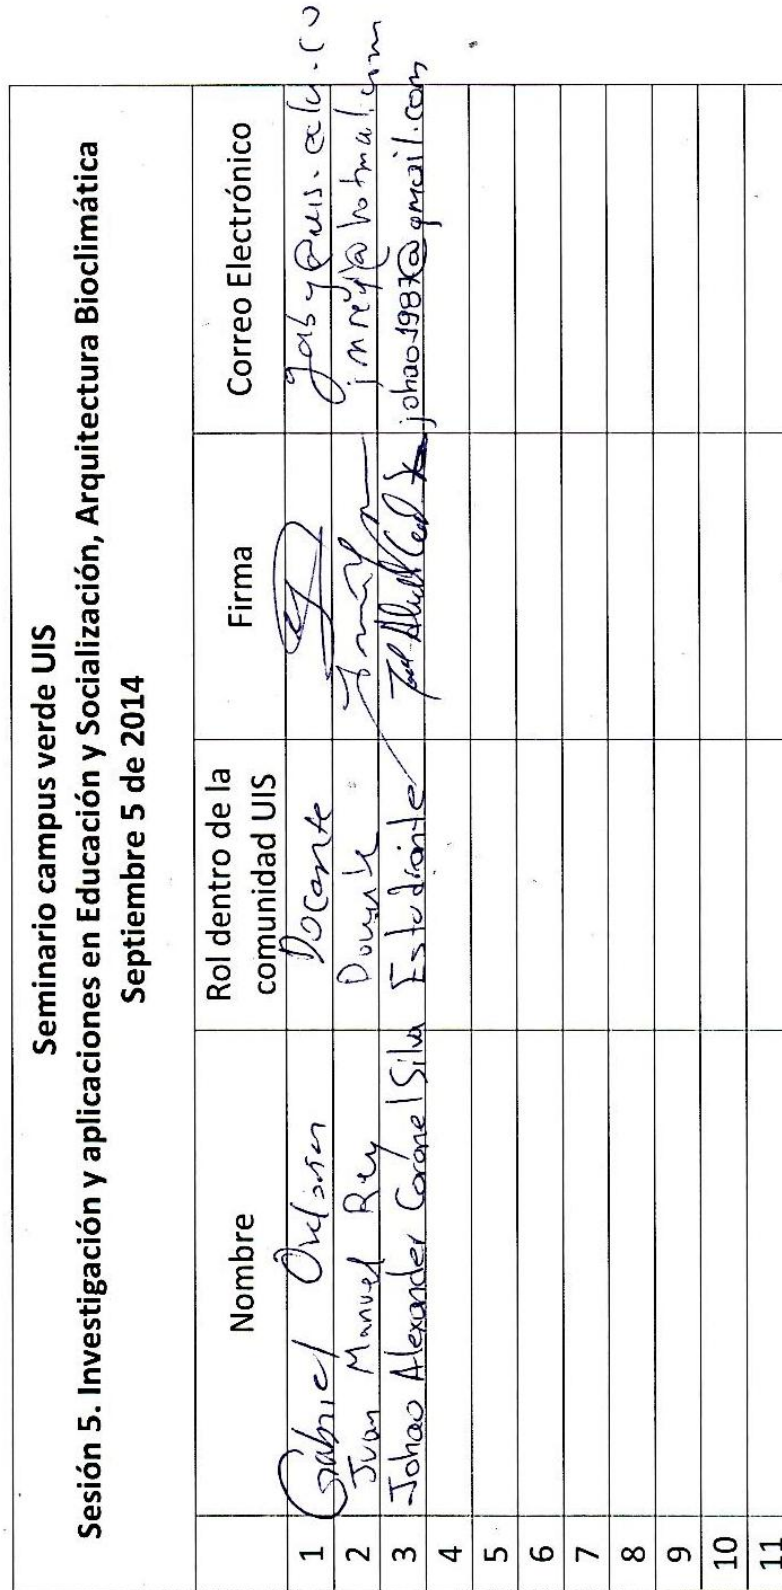 Seminario campus verde UIS
Sesión 5. Investigación y aplicaciones en Educación y Socialización, Arquitectura Bioclimática
Septiembre 5 de 2014
Nombre Rol dentro de la comunidad UIS Firma Correo Electrónico
1 Gabriel Docente gaby@uis.edu.co
2 Juan Manuel Rey Docente jmrey@hotmail.com
3 Johao Alexander Coronel Silva Estudiante johao1987@gmail.com
4
5
6
7
8
9
10
11